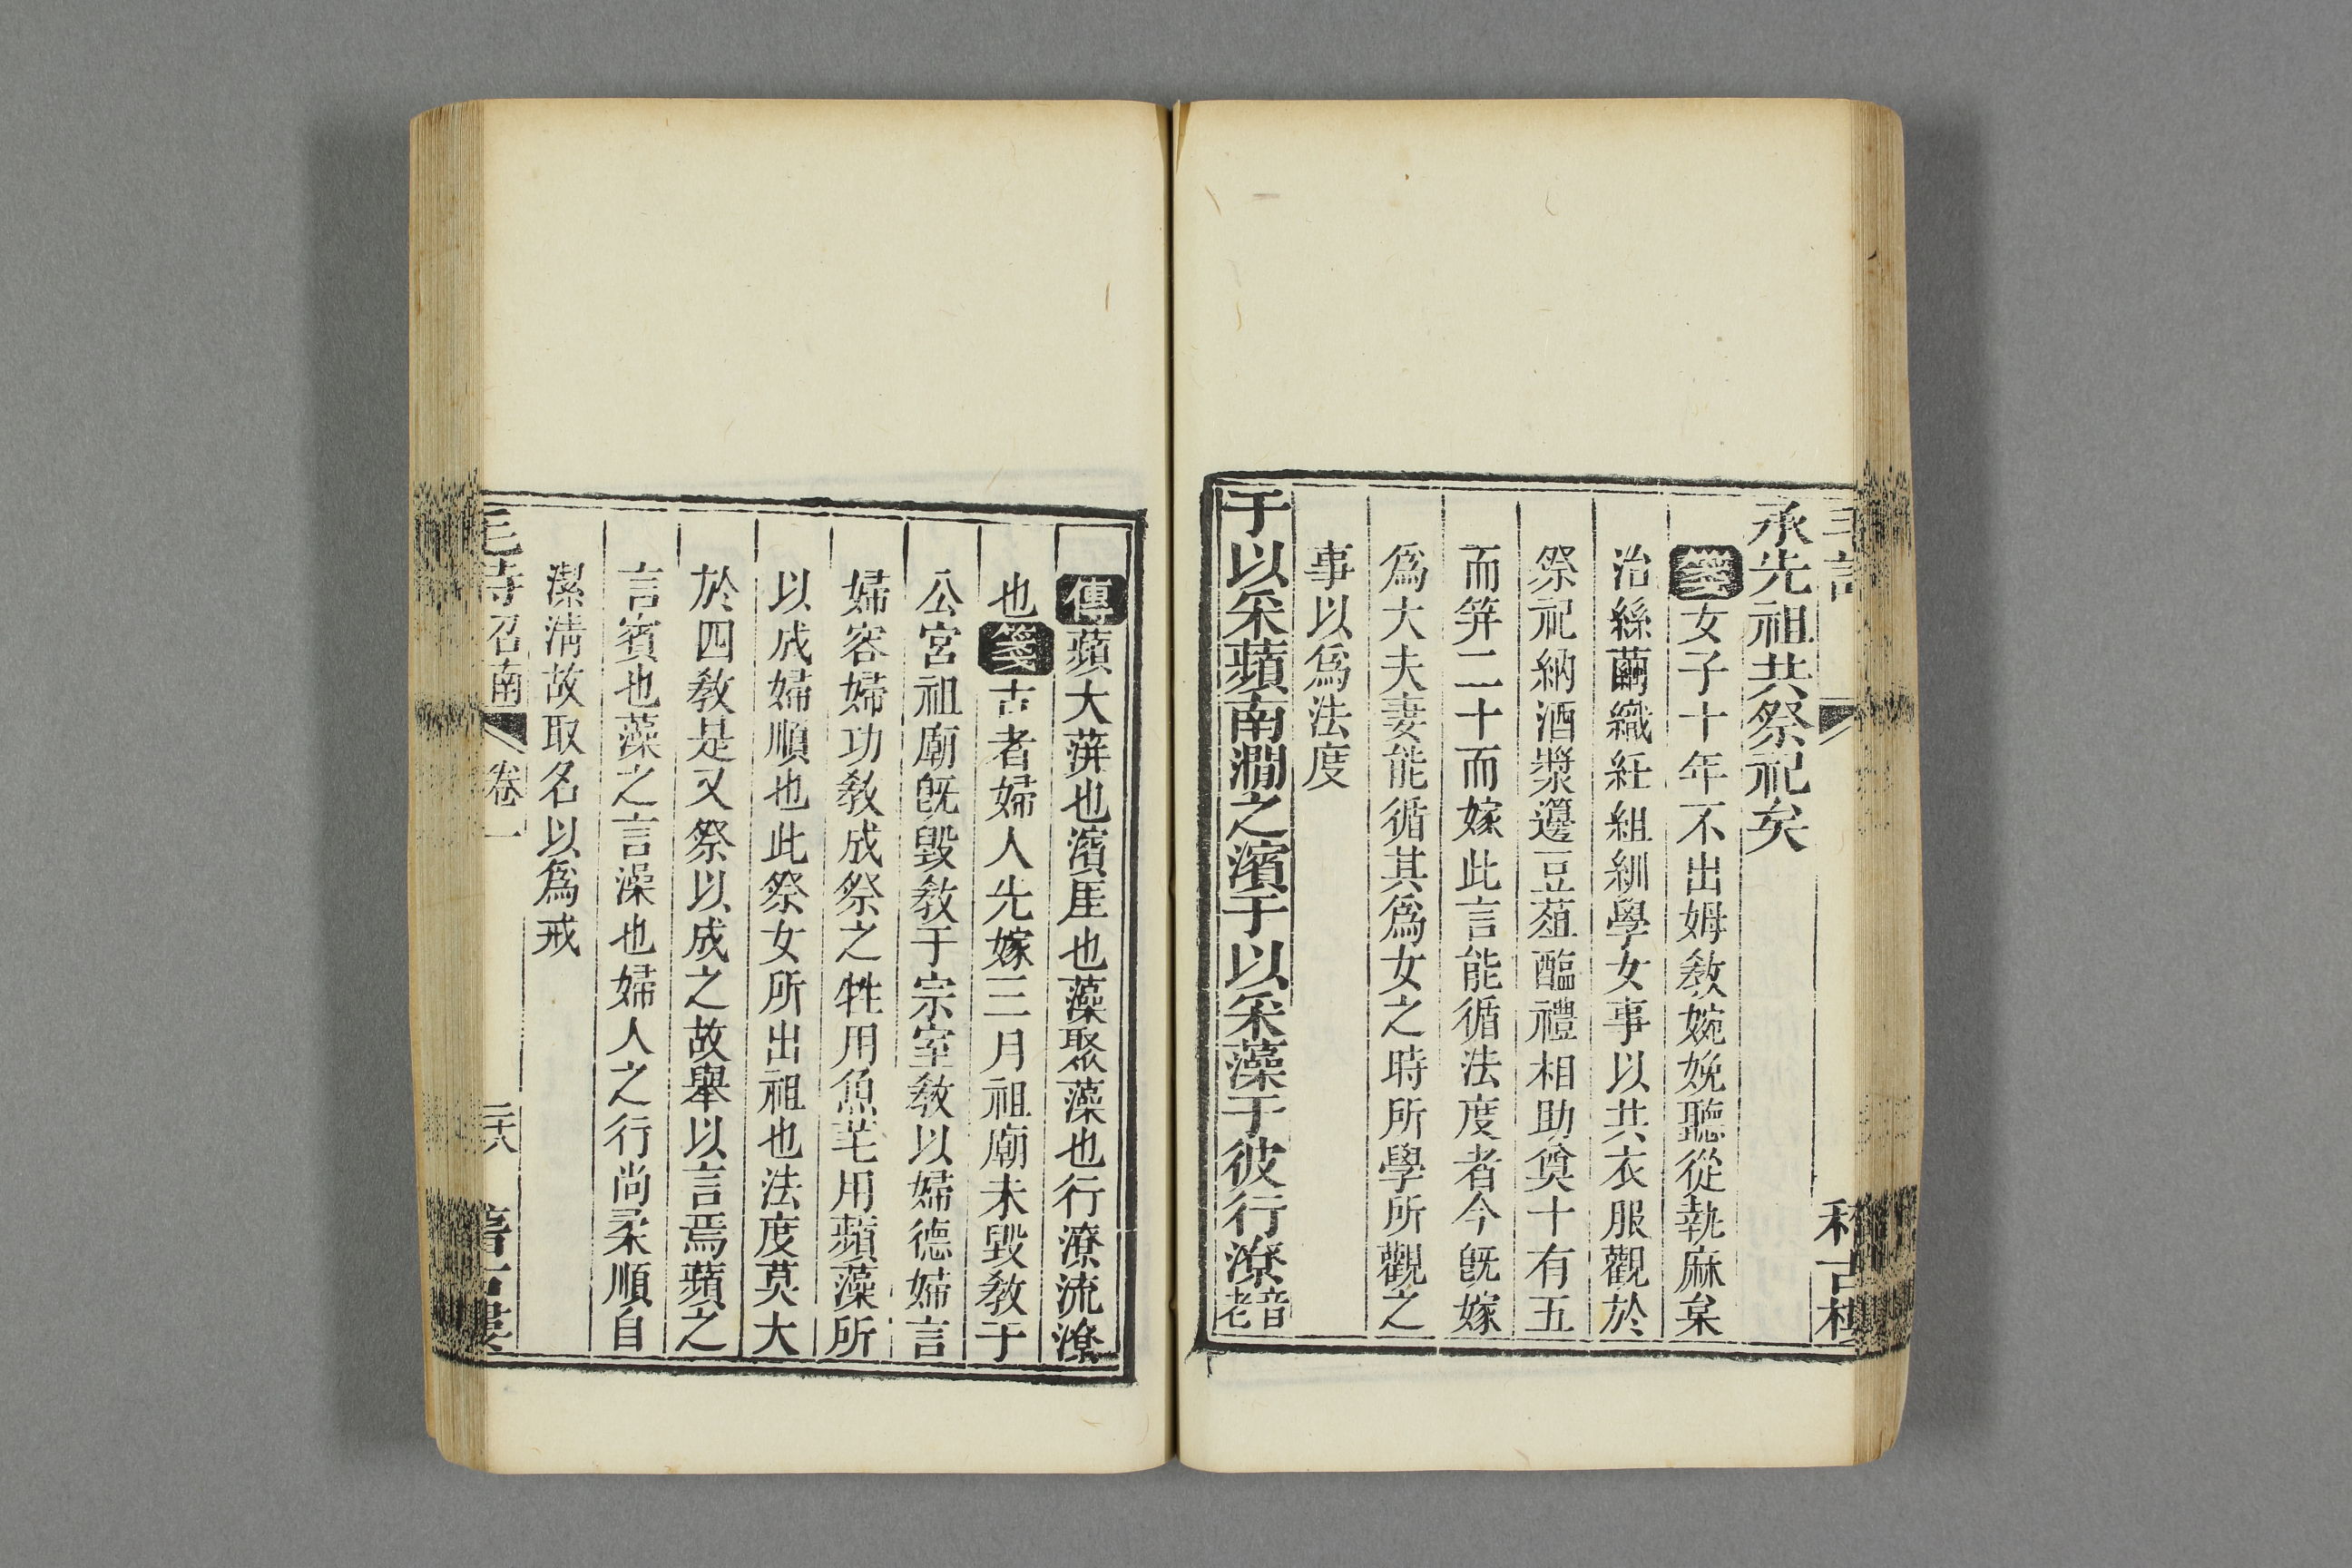 承先祖共祭祀矣
箋女子十年不出姆敎婉娩聽從執麻枲
治絲繭織紝組紃學女事以共衣服觀於
祭祀納酒漿籩豆葅醢禮相助奠十有五
而筓二十而嫁此言能循法度者今旣嫁
爲大夫妻能循其爲女之時所學所觀之
事以爲法度
于以采蘋南澗之濱于以采藻于彼行潦音老
傳蘋大蓱也濱厓也藻聚藻也行潦流潦
也箋古者婦人先嫁三月祖廟未毀敎于
公宮祖廟旣毀敎于宗室敎以婦德婦言
婦容婦功敎成祭之牲用魚芼用蘋藻所
以成婦順也此祭女所出祖也法度莫大
於四敎是又祭以成之故舉以言焉蘋之
言賓也藻之言澡也婦人之行尚柔順自
潔淸故取名以爲戒
毛詩召南 卷一 二十八